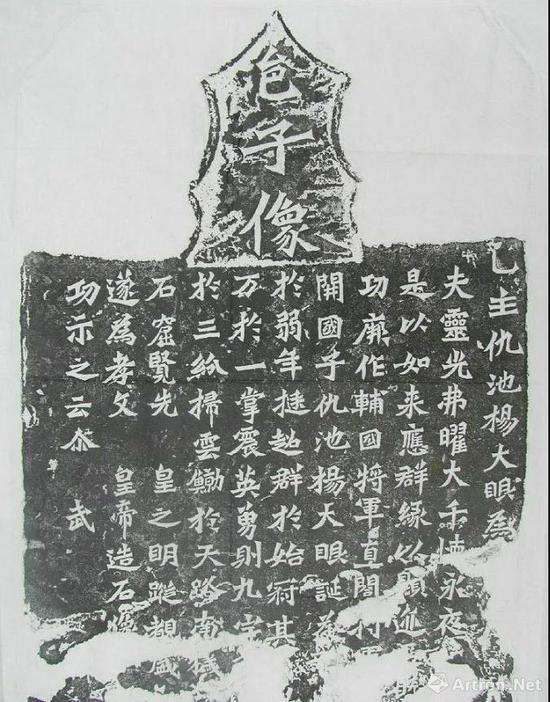 邑子像
邑主仇池楊大眼為
夫靈光弗曜大千懷永夜
是以如来應群緣以顯迹
功廓作輔國將軍直閤將
開國子仇池楊大眼誕承
於弱年挺超群於始冠其
万於一掌震英勇則九宇
於三紛掃雲鯨於天路南穢
石窟覽先 皇之明蹤覩盛
遂為孝文 皇帝造石像
功示之云尒 武
Artron.Net